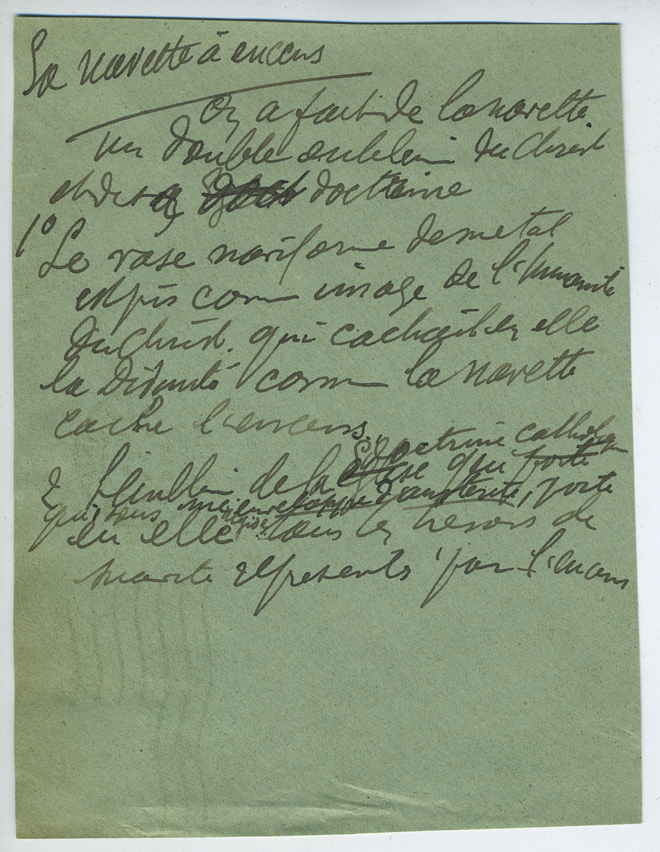 La navette à encens
On a fait de la navette
un double emblème du Christ
et de sa doctrine
1° Le vase naviforme de métal
est pris comme image de l'humanité
du Christ, qui cachait en elle
la Divinité comme la navette
cache l'encens.
2 L'emblème de la doctrine catholique
qui, sous une enveloppe d'austérité, porte
en elle tous les trésors de
représentés par l'encens